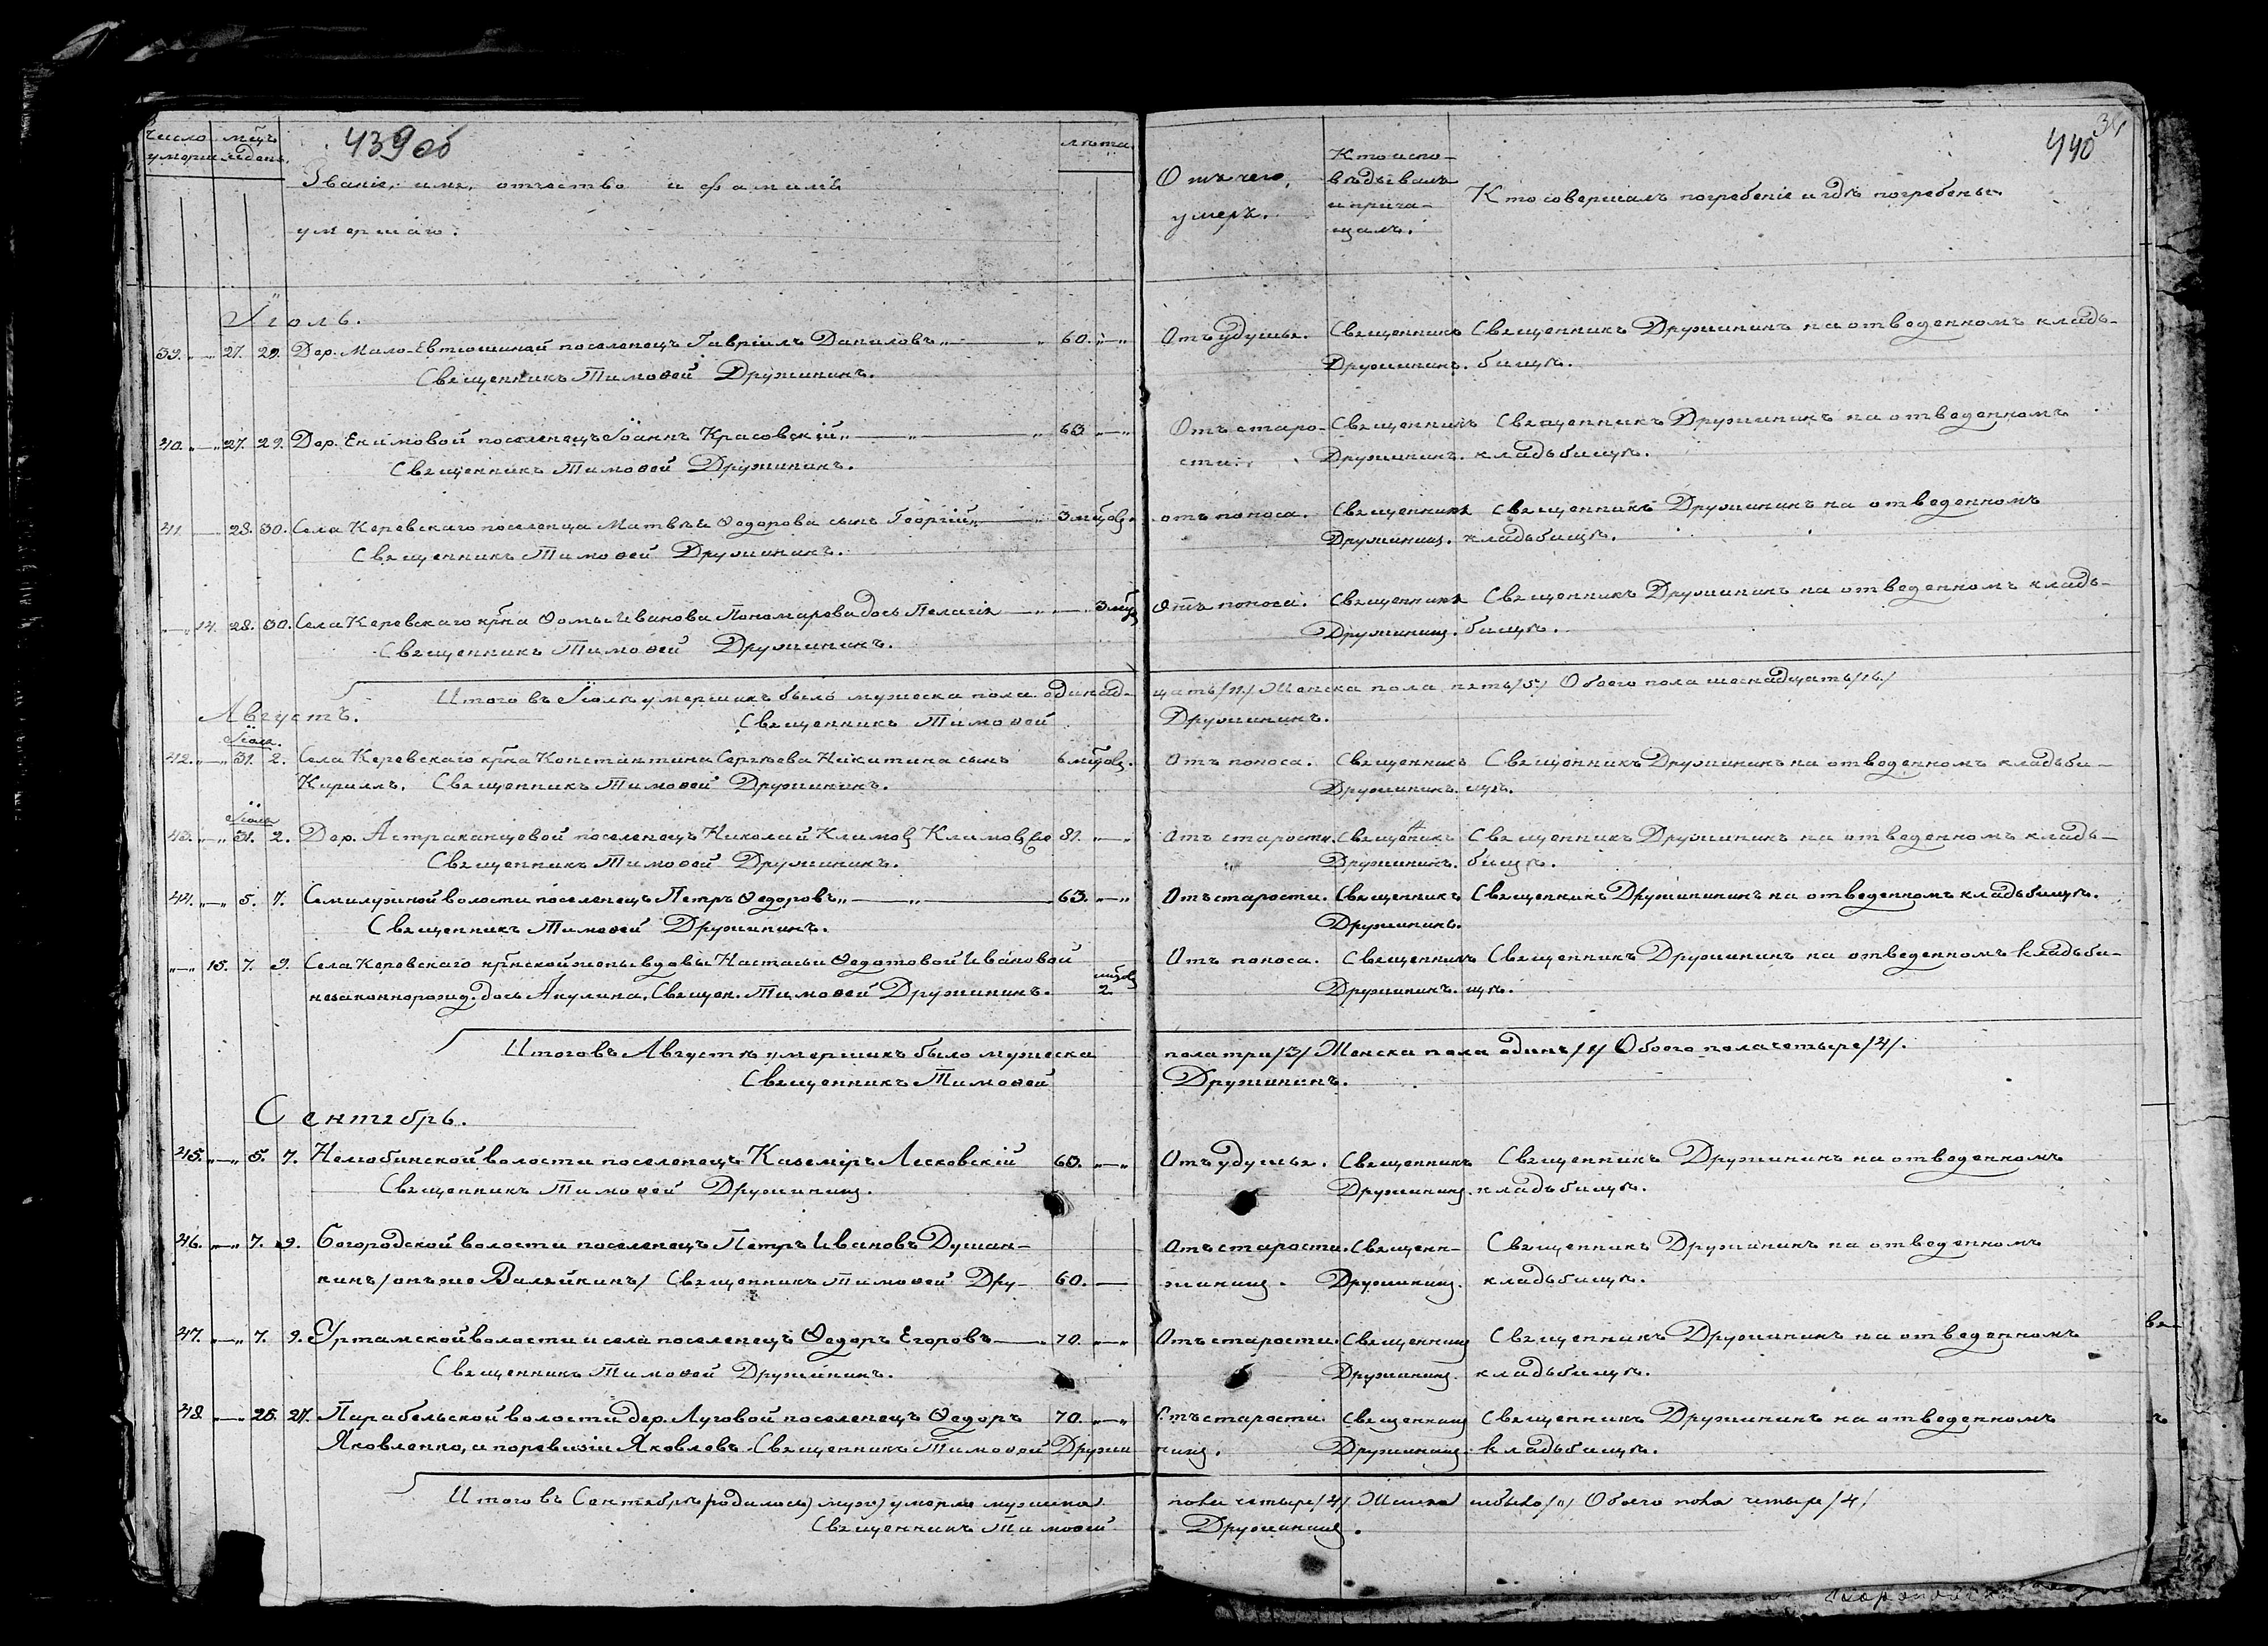 число умерш. мцъ и день.
439 об
Званіе, имя, отчество и фамилія
умершаго.
лѣта.
Отъ чего умеръ.
Кто испо-
вѣдывалъ
и прича-
щалъ.
Кто совершалъ погребеніе и гдѣ погребены.
440
Іюль.
39. „—„ 27. 29. Дер. Мало-Евтюшиной поселенецъ Гавріилъ Даниловъ „—„ 60. „—„ Отъ удушья. Священникъ Священникъ Дружининъ на отведенномъ кладь-
Священникъ Тимоѳей Дружининъ. Дружининъ. бищѣ.
40. „—„ 27. 29. Дер. Екимовой поселенецъ Іоаннъ Красовскій „—„—„ 63 „—„ Отъ старо- Священникъ Священникъ Дружининъ на отведенномъ
Священникъ Тимоѳей Дружининъ. сти. Дружининъ. кладьбищѣ.
41. — 28. 30. Села Керевскаго поселенца Матвѣя Ѳедорова сынъ Георгій „—„ 3 мцовъ. отъ поноса. Священникъ Священникъ Дружининъ на отведенномъ
Священникъ Тимоѳей Дружининъ. Дружининъ. кладьбищѣ.
„—„ 14. 28. 30. Села Керевскаго крѣна Ѳомы Иванова Пономарева дочь Пелагія —„— 3 мцъ Отъ поноса. Священникъ Священникъ Дружининъ на отведенномъ кладь-
Священникъ Тимоѳей Дружининъ. Дружининъ. бищѣ.
Итого въ Іюлѣ умершихъ было мужеска пола одинад- цать /11/ Женска пола пять /5/ Обоего пола шеснадцать /16./
Августъ. Священникъ Тимоѳей Дружининъ.
Іюля.
42. „—„ 31. 2. Села Керевскаго крна Константина Сергѣева Никитина сынъ 6 мцовъ. Отъ поноса. Священникъ Священникъ Дружининъ на отведенномъ кладьби-
Кириллъ. Священникъ Тимоѳей Дружининъ. Дружининъ. щѣ.
Іюля
43. „—„ 31. 2. Дер. Астраханцевой поселенецъ Николай Климовъ Климов 81. „—„ Отъ старости. Священикъ Священникъ Дружининъ на отведенномъ кладь-
Священникъ Тимоѳей Дружининъ. Дружининъ. бищѣ.
44. „—„ 5. 7. Семилужной волости поселенецъ Петръ Ѳедоровъ „—„— 63. „—„ Отъ старости. Священникъ Священникъ Дружининъ на отведенномъ кладьбищѣ.
Священникъ Тимоѳей Дружининъ. Дружининъ.
„—„ 15. 7. 9. Села Керевскаго крѣнской жены вдовы Настасьи Ѳедотовой Ивановой мцов Отъ поноса. Священникъ Священникъ Дружининъ на отведенномъ кладьби-
незаконнорожд. дочь Акулина. Священ. Тимоѳей Дружининъ. 2. Дружининъ. щѣ.
Итого въ Августѣ умершихъ было мужеска пола три /3/ Женска пола одинъ /1/ Обоего пола четыре /4/.
Священникъ Тимоѳей Дружининъ.
Сентябрь.
45. „—„ 5. 7. Нелюбинской волости поселенецъ Каземіръ Лесковскій 60. „—„ Отъ удушья. Священникъ Священникъ Дружининъ на отведенномъ
Священникъ Тимоѳей Дружининъ. Дружининъ. кладьбищѣ.
46. „—„ 7. 9. Богородской волости поселенецъ Петръ Ивановъ Душан- Отъ старости. Священ- Священникъ Дружининъ на отведенномъ
кинъ /онъ же Валяйкинъ/ Священникъ Тимоѳей Дру- 60. — жининъ. Дружининъ. кладьбищѣ.
47. „—„ 7. 9. Уртамской волости и села поселенецъ Ѳедоръ Егоровъ —. 70. „—„ Отъ старости. Священникъ Священникъ Дружининъ на отведенномъ
Священникъ Тимоѳей Дружининъ. Дружининъ. кладьбищѣ.
48. —„ 25. 27. Парабельской волости дер. Луговой поселенецъ Ѳедоръ 70. „—„ Отъ старости. Священникъ Священникъ Дружининъ на отведенномъ
Яковленко, и по ревизіи Яковлевъ. Священникъ Тимоѳей Дружи- нинъ. Дружининъ. кладьбищѣ.
Итого въ Сентябрѣ (родилось) муж) умерло мужска пола четыре /4/ Женска небыло /0/ Обоего пола четыре /4/
Священникъ Тимоѳей Дружининъ.